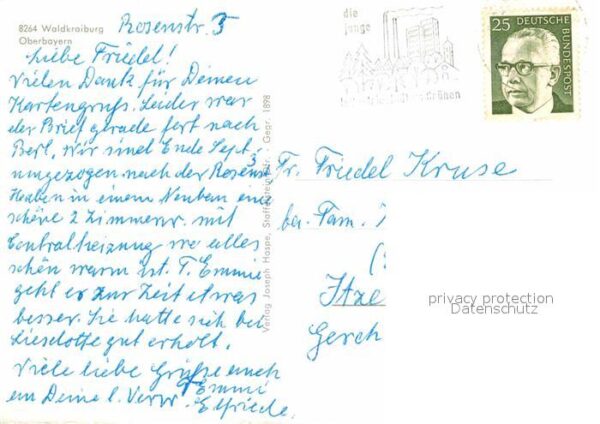 8264 Waldkraiburg
Oberbayern
Rosenstr. 3
Liebe Friedel!
Vielen Dank für Deinen
Kartengruß. Leider war
der Brief gerade fort nach
Berl. Wir sind Ende Sept.
umgezogen nach der Rosenstr 3
Haben in einem Neubau eine
schöne 2 Zimmerw. mit
Centralheizung wo alles
schön warm ist. T. Emmi
geht es zur Zeit etwas
besser. Sie hatte sich bei
Lieslotte gut erholt.
Viele liebe Grüße auch
an Deine l. Verw.
T. Emmi
Elfriede.
Verlag Joseph Hospe, Staffelstein Gegr. 1898
die
junge
im Grünen
25 DEUTSCHE
BUNDESPOST
Fr. Friedel Kruse
bei Fam.
Itze
Gerch
privacy protection
Datenschutz